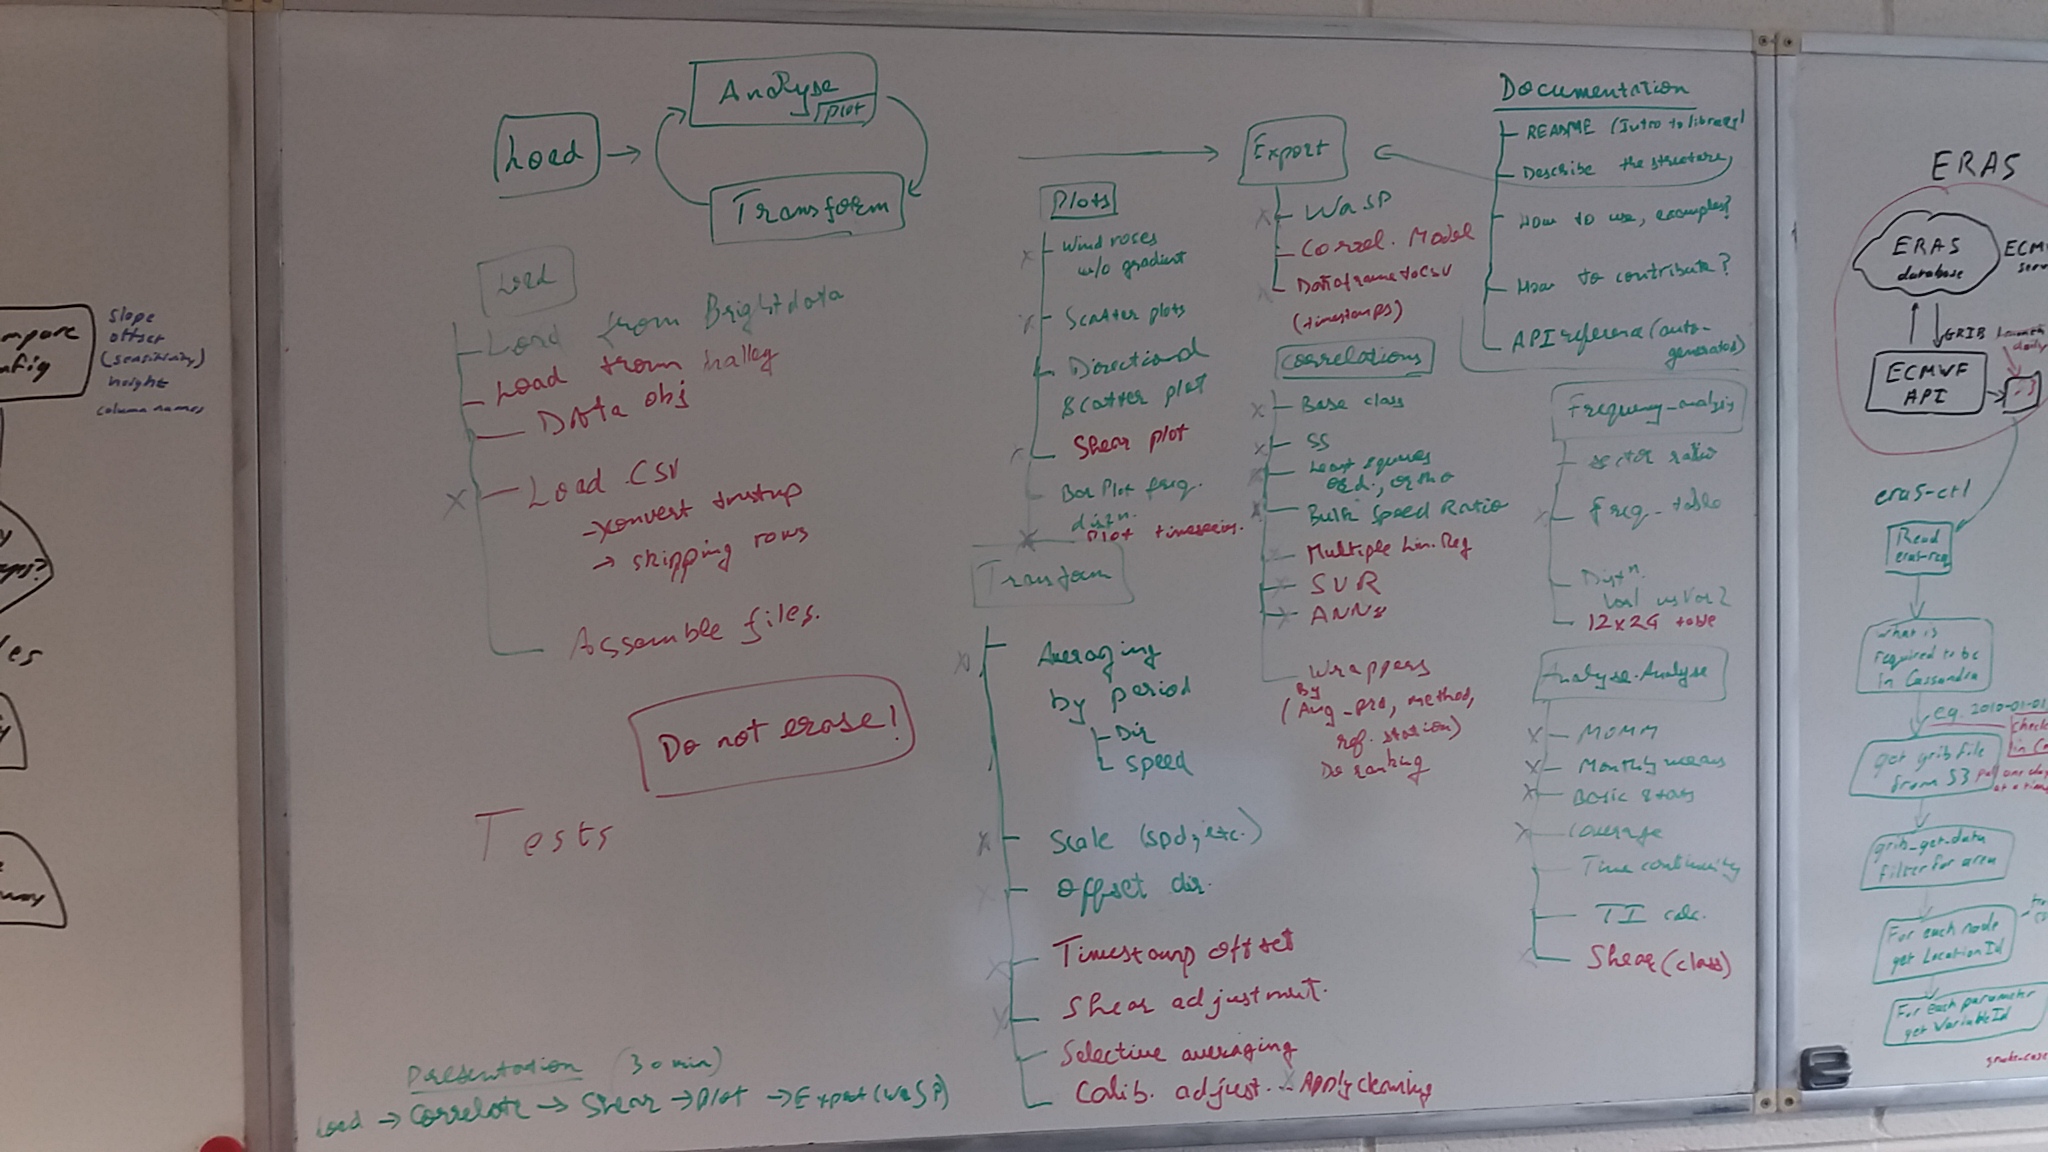 Load
Analyse
Plot
Transform
Load
Load from Brightdata
Load from halley
Data obj
Load .CSV
→ convert tmstmp
→ skipping rows
Assemble files.
Do not erase!
Tests
Presentation (30 min)
Load → Correlate → Shear → Plot → Export (WaSP)
Plots
Wind roses
w/o gradient
Scatter plots
Directional
Scatter plot
Shear plot
Bar Plot freq.
distn.
Plot timeseries.
Transform
Averaging
by period
Dir
Speed
Scale (spd, etc.)
Offset dir.
Timestamp offset
Shear adjustment.
Selective averaging
Calib. adjust. Apply cleaning
Export
WaSP
Correl. Model
Dataframe to CSV
(timestamps)
Correlations
Base class
SS
Least squares
ord., ortho
Bulk Speed Ratio
Multiple Lin. Reg
SVR
ANNs
Wrappers
By
(Avg_prd, method,
ref. station)
Do ranking
Documentation
README (Intro to library)
Describe the structure
How to use, examples?
How to contribute?
API reference (auto-
generated)
Frequency_analysis
sector ratio
freq_table
Distn.
Var1 vs Var2
12x24 table
Analyse.Analyse
MOMM
Monthly means
Basic stats
Coverage
Time continuity
TI calc.
Shear (class)
slope
offset
(sensitivity)
height
column names
ERA5
ERA5
database
GRIB
ECMWF
API
era5-ctl
Read
era5-req
What is
required to be
in Cassandra
eg. 2010-01-01
get grib file
from S3
grib_get_data
filter for area
For each node
get LocationId
For each parameter
get VariableId